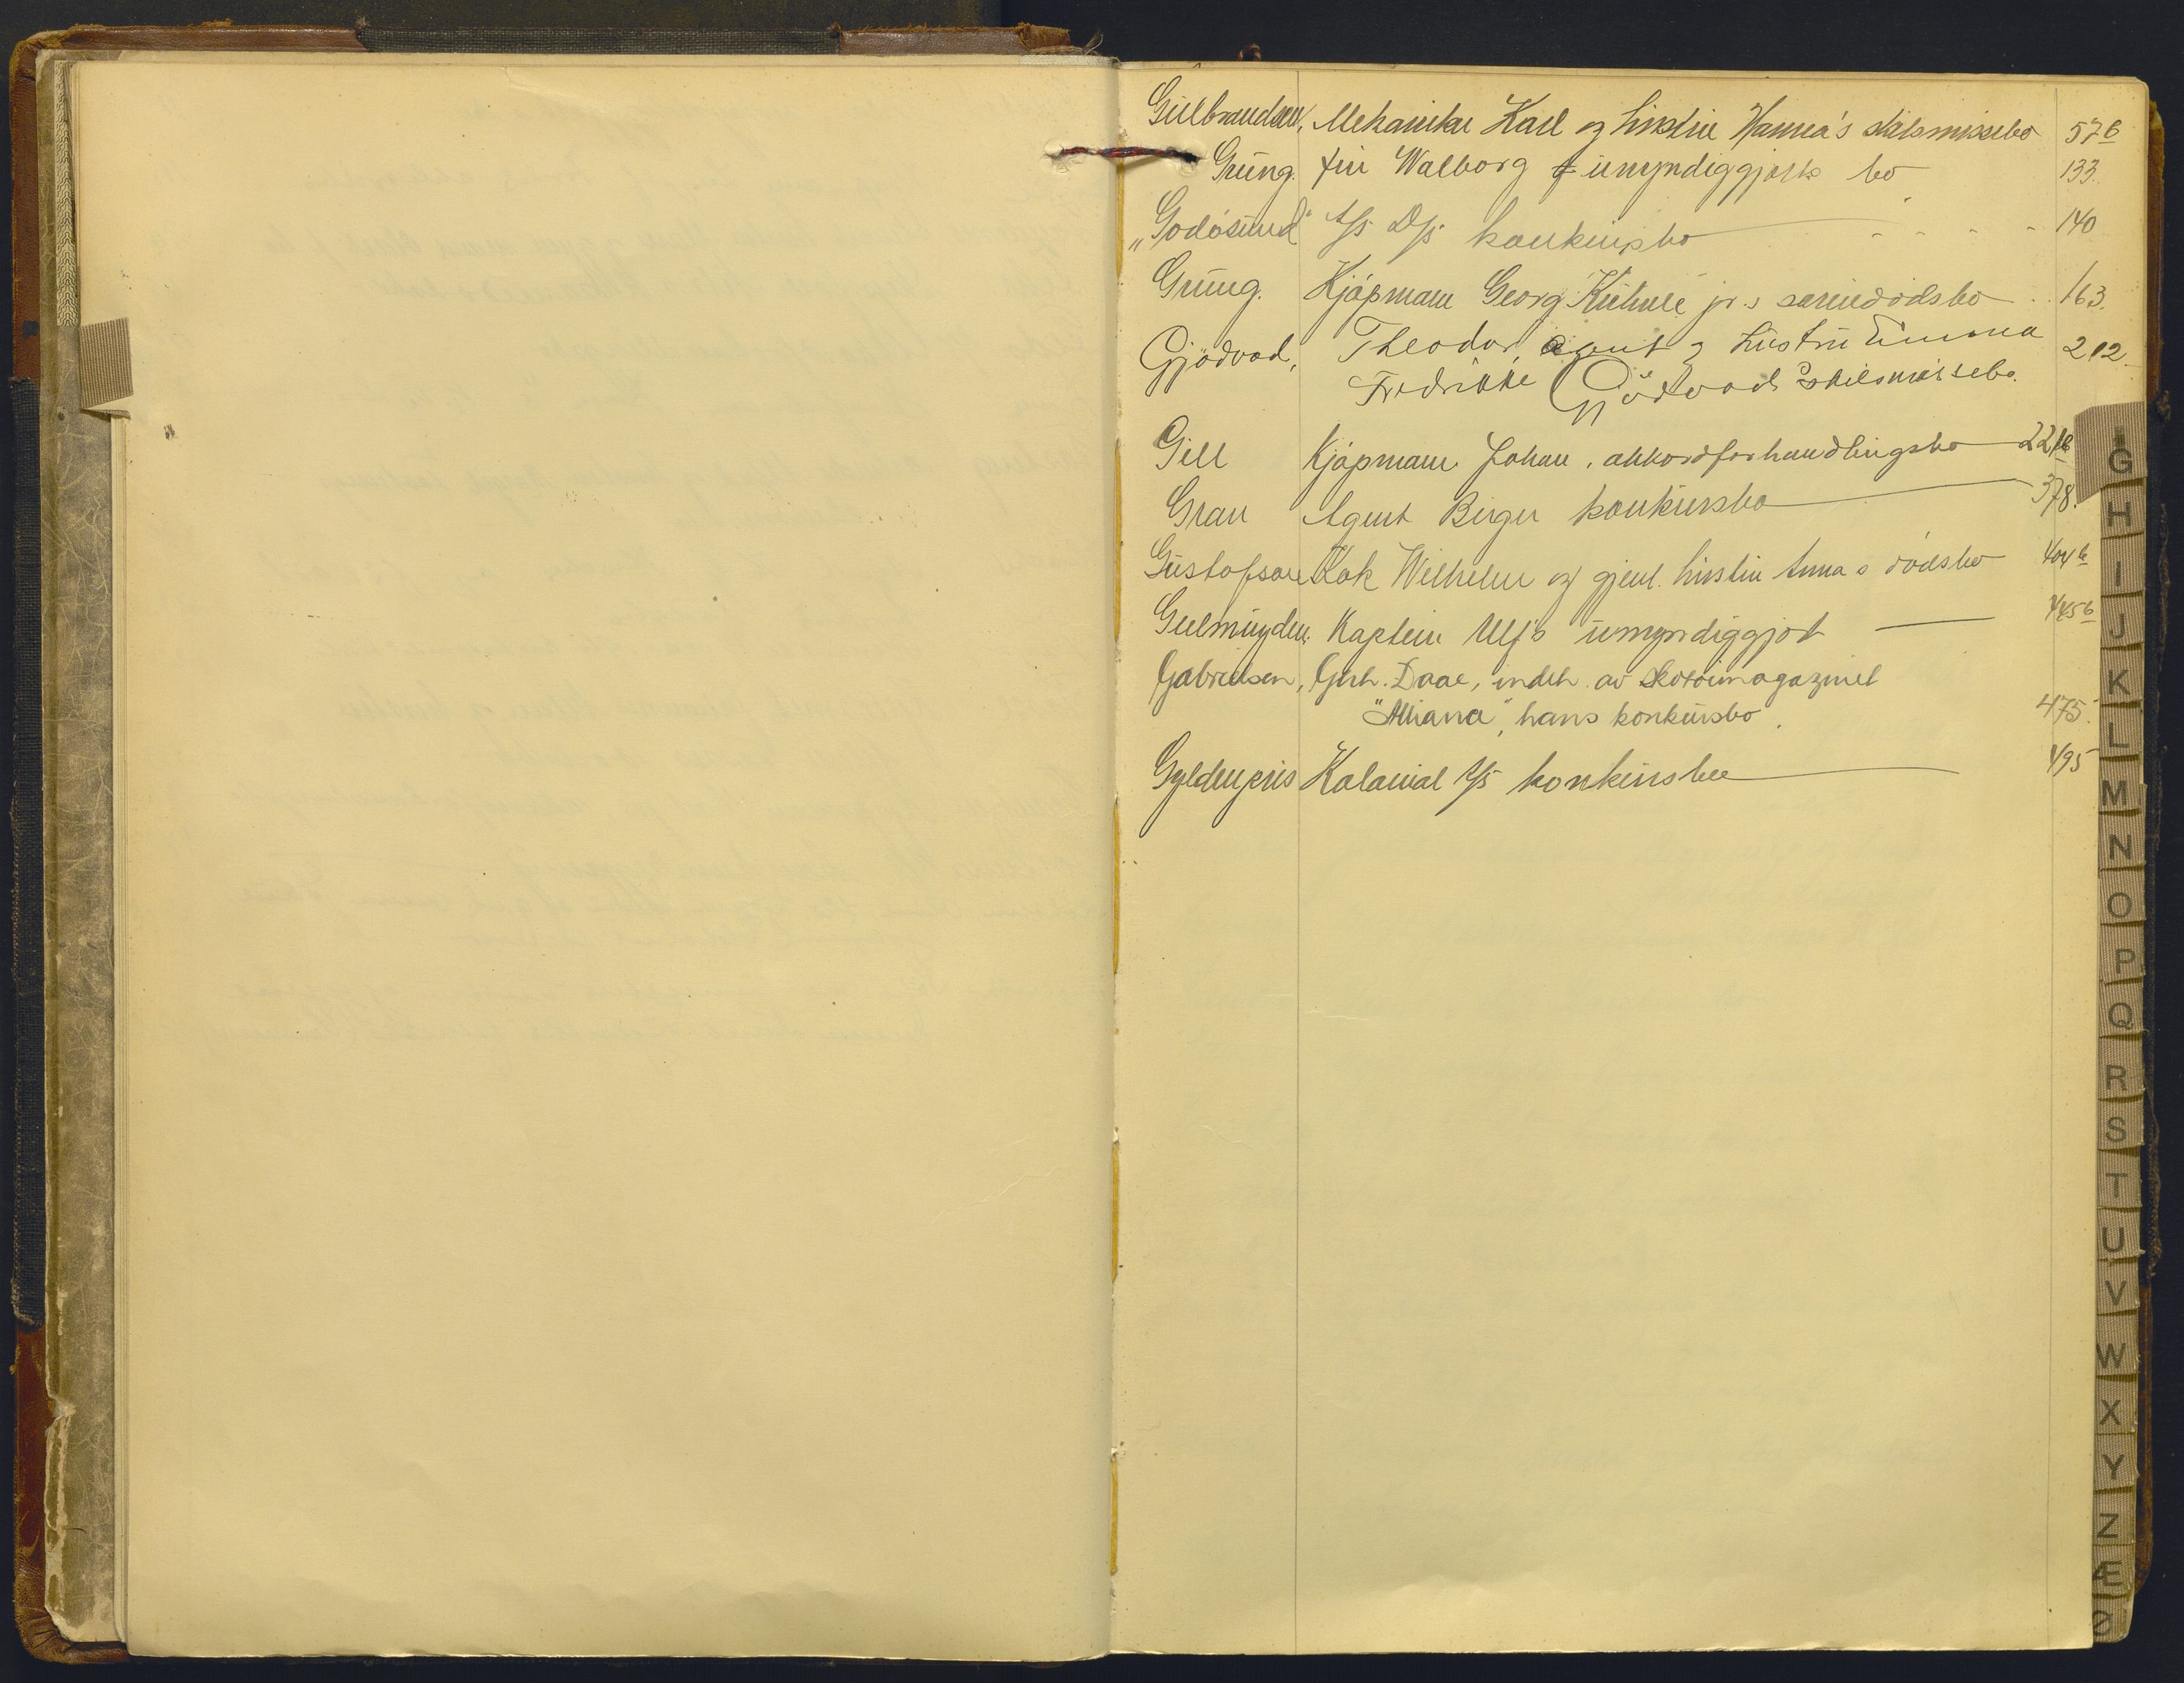 Gulbrandsen, Mekaniker Karl og hustru Hanna's skilsmissebo 57b
Grung. fru Walborg umyndiggjorte bo 133.
"Godøsund" A/S D/S konkursbo - - - - 140
Grung. Kjøpmann Georg Kühnle jr.s særiedødsbo .. 163.
Gjödvad, Theodor, agent og hustru Emma 212
Fredrikke Gjödvads skilsmissebo.
Gill Kjøpmann Johan, akkordforhandlingsbo 221b
Gran Agent Birger konkursbo 378.
Gustafson Kok Wilhelm og gjenl. hustru Anna s dødsbo 404b
Gulmuyden. Kaptein Ulf's umyndiggjort 445b
Gabrielsen, Gerh. Daae, indeh. av skotøimagazinet
"Alliance", hans konkursbo. 475.
Gyldenpris Kolonial A/S konkursbo 495
G
H
I
J
K
L
M
N
O
P
Q
R
S
T
U
V
W
X
Y
Z
Æ
Ø